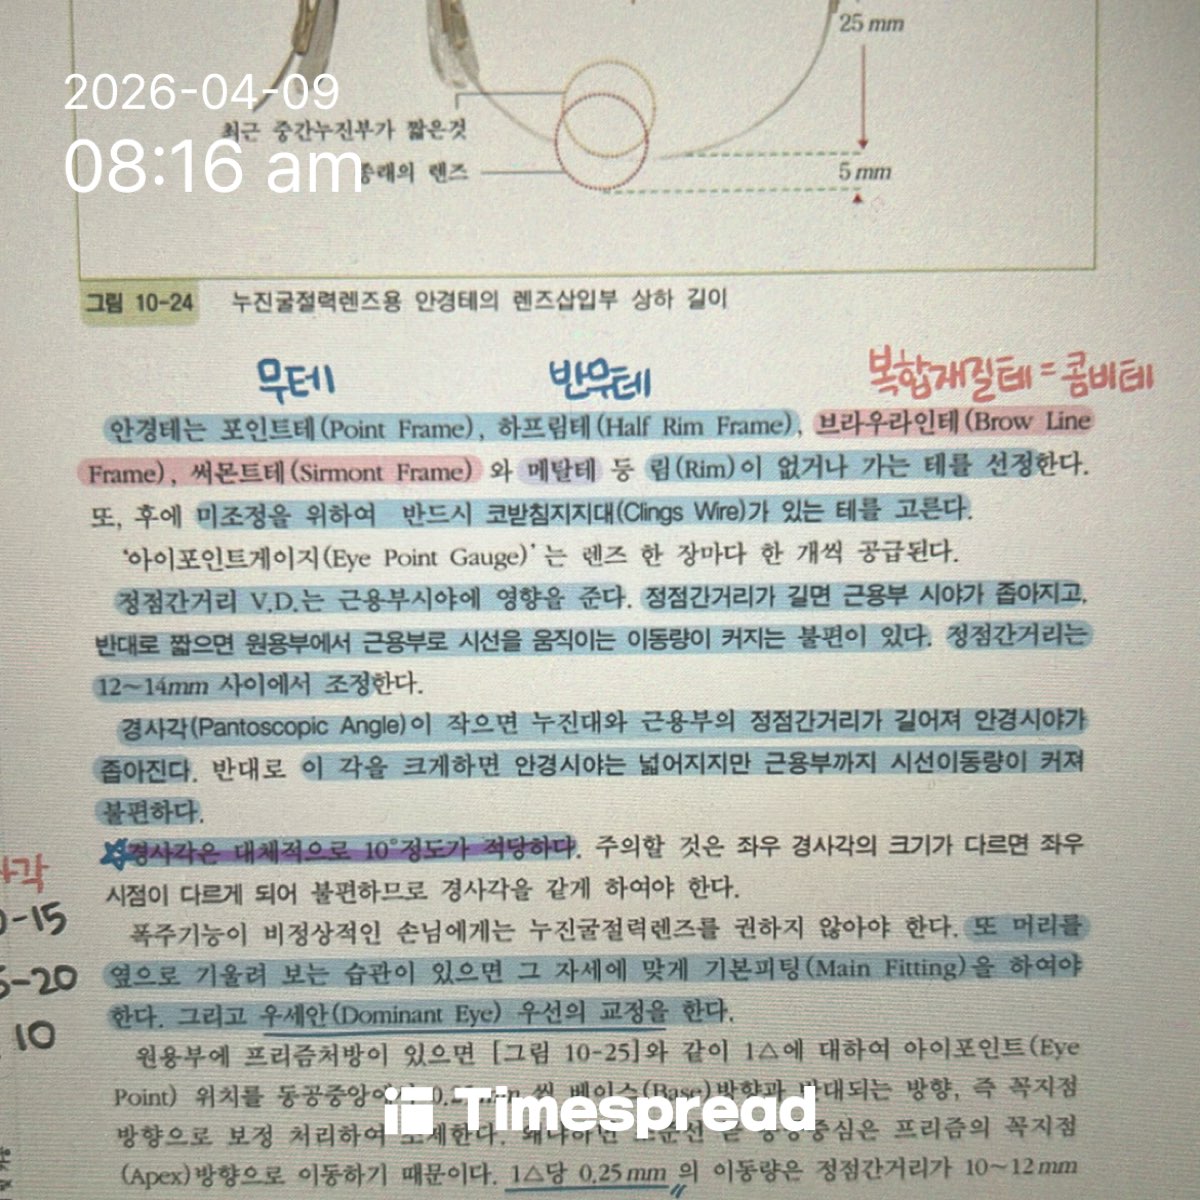 25 mm
2026-04-09
최근 중간누진부가 짧은것
08:16 am
종래의 렌즈
5 mm
그림 10-24 누진굴절력렌즈용 안경테의 렌즈삽입부 상하 길이
무테 반무테 복합재질테 = 콤비테
안경테는 포인트테(Point Frame), 하프림테(Half Rim Frame), 브라우라인테(Brow Line
Frame), 써몬트테(Sirmont Frame)와 메탈테 등 림(Rim)이 없거나 가는 테를 선정한다.
또, 후에 미조정을 위하여 반드시 코받침지지대(Clings Wire)가 있는 테를 고른다.
'아이포인트게이지(Eye Point Gauge)'는 렌즈 한 장마다 한 개씩 공급된다.
정점간거리 V.D.는 근용부시야에 영향을 준다. 정점간거리가 길면 근용부 시야가 좁아지고,
반대로 짧으면 원용부에서 근용부로 시선을 움직이는 이동량이 커지는 불편이 있다. 정점간거리는
12~14mm 사이에서 조정한다.
경사각(Pantoscopic Angle)이 작으면 누진대와 근용부의 정점간거리가 길어져 안경시야가
좁아진다. 반대로 이 각을 크게하면 안경시야는 넓어지지만 근용부까지 시선이동량이 커져
불편하다.
경사각은 대체적으로 10°정도가 적당하다. 주의할 것은 좌우 경사각의 크기가 다르면 좌우
사각
시점이 다르게 되어 불편하므로 경사각을 같게 하여야 한다.
-15
폭주기능이 비정상적인 손님에게는 누진굴절력렌즈를 권하지 않아야 한다. 또 머리를
-20
옆으로 기울려 보는 습관이 있으면 그 자세에 맞게 기본피팅(Main Fitting)을 하여야
10
한다. 그리고 우세안(Dominant Eye) 우선의 교정을 한다.
원용부에 프리즘처방이 있으면 [그림 10-25]와 같이 1△에 대하여 아이포인트(Eye
Point) 위치를 동공중앙에서 씩 베이스(Base)방향과 반대되는 방향, 즉 꼭지점
Timespread
방향으로 보정 처리하여 프리즘의 꼭지점
(Apex)방향으로 이동하기 때문이다. 1△당 0.25mm의 이동량은 정점간거리가 10~12mm